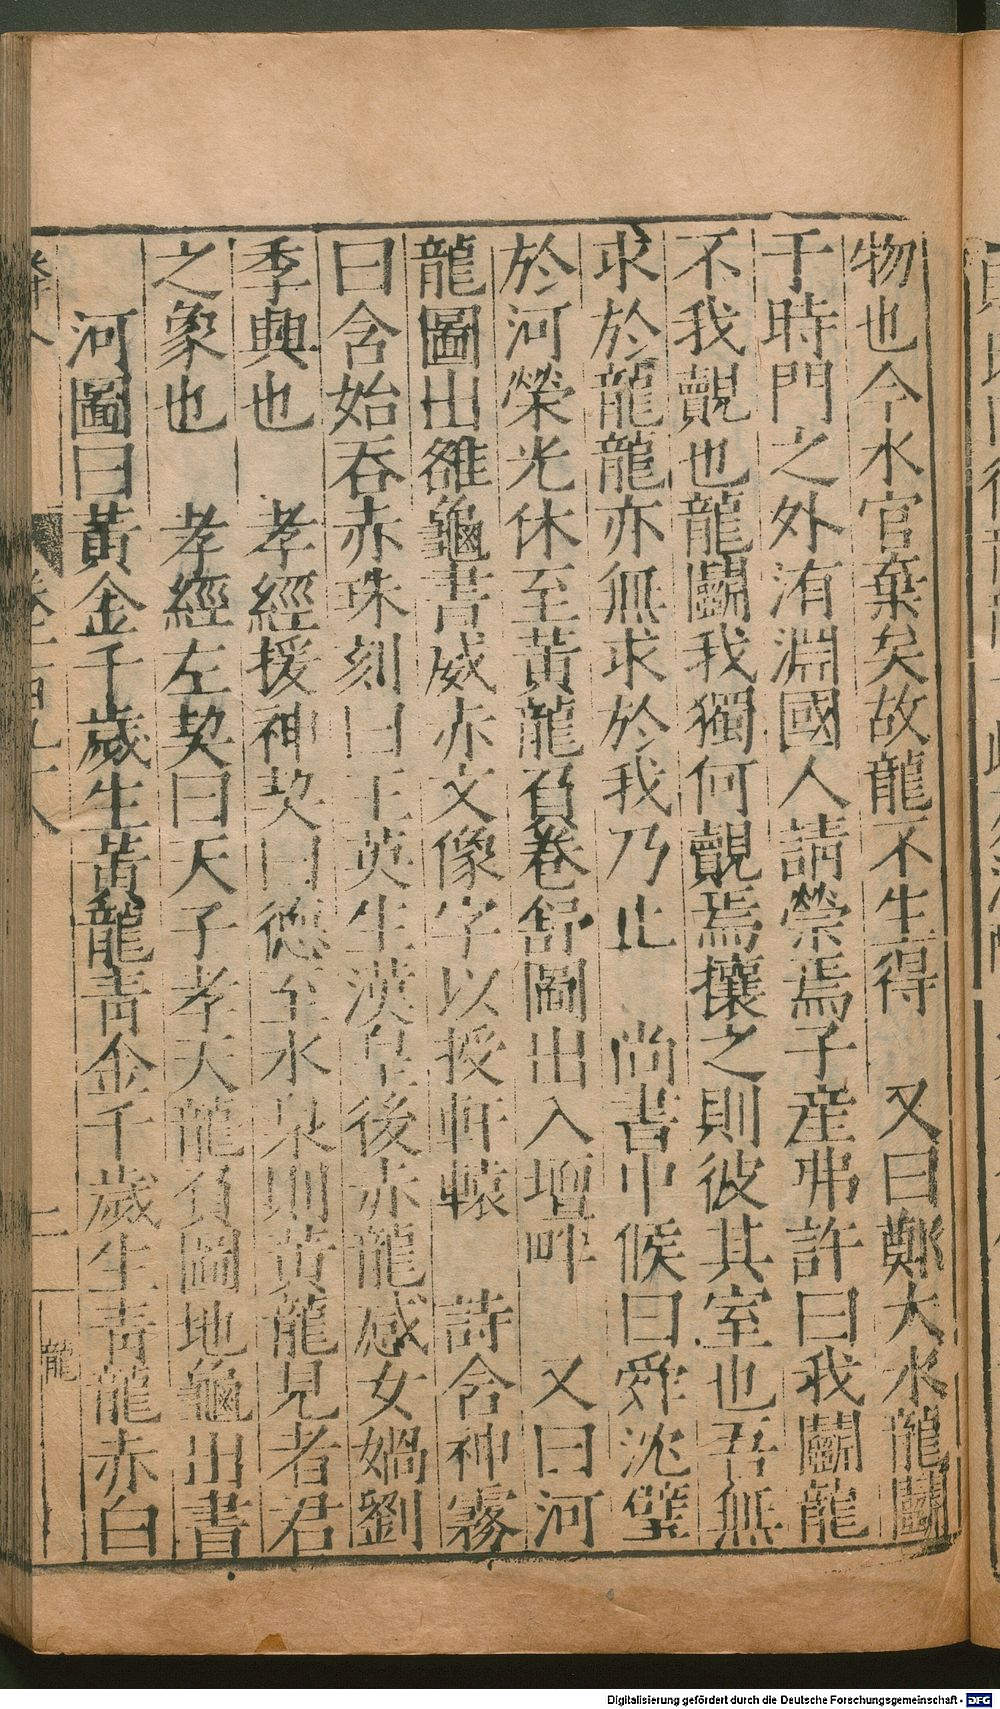 物也今水官棄矣故龍不生得　又曰鄭大水龍鬬
于時門之外洧淵國人請禜焉子産弗許曰我鬬龍
不我覿也龍鬬我獨何覿焉攘之則彼其室也吾無
求於龍龍亦無求於我乃止　尚書中候曰舜沈璧
於河榮光休至黃龍負卷舒圖出入壇畔　又曰河
龍圖出雒龜書威赤文像字以授軒轅　詩含神霧
曰含始吞赤珠刻曰玉英生漢皇後赤龍感女媧劉
季興也　孝經援神契曰德至水泉則黃龍見者君
之象也　孝經左契曰天子孝天龍負圖地龜出書
河圖曰黃金千歲生黃龍青金千歲生青龍赤白
二
龍
Digitalisierung gefördert durch die Deutsche Forschungsgemeinschaft - DFG